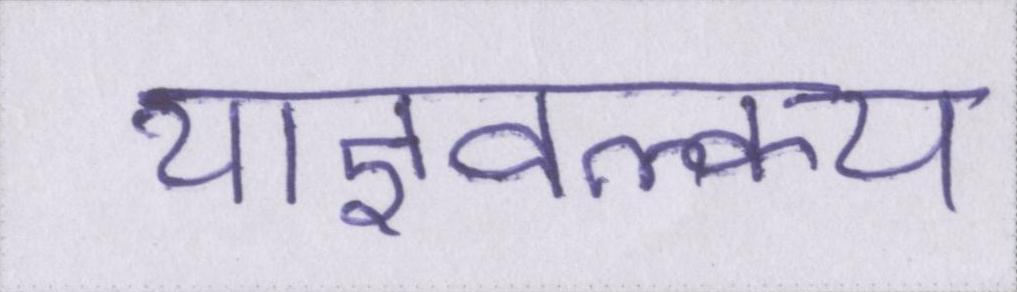 याज्ञवल्क्य